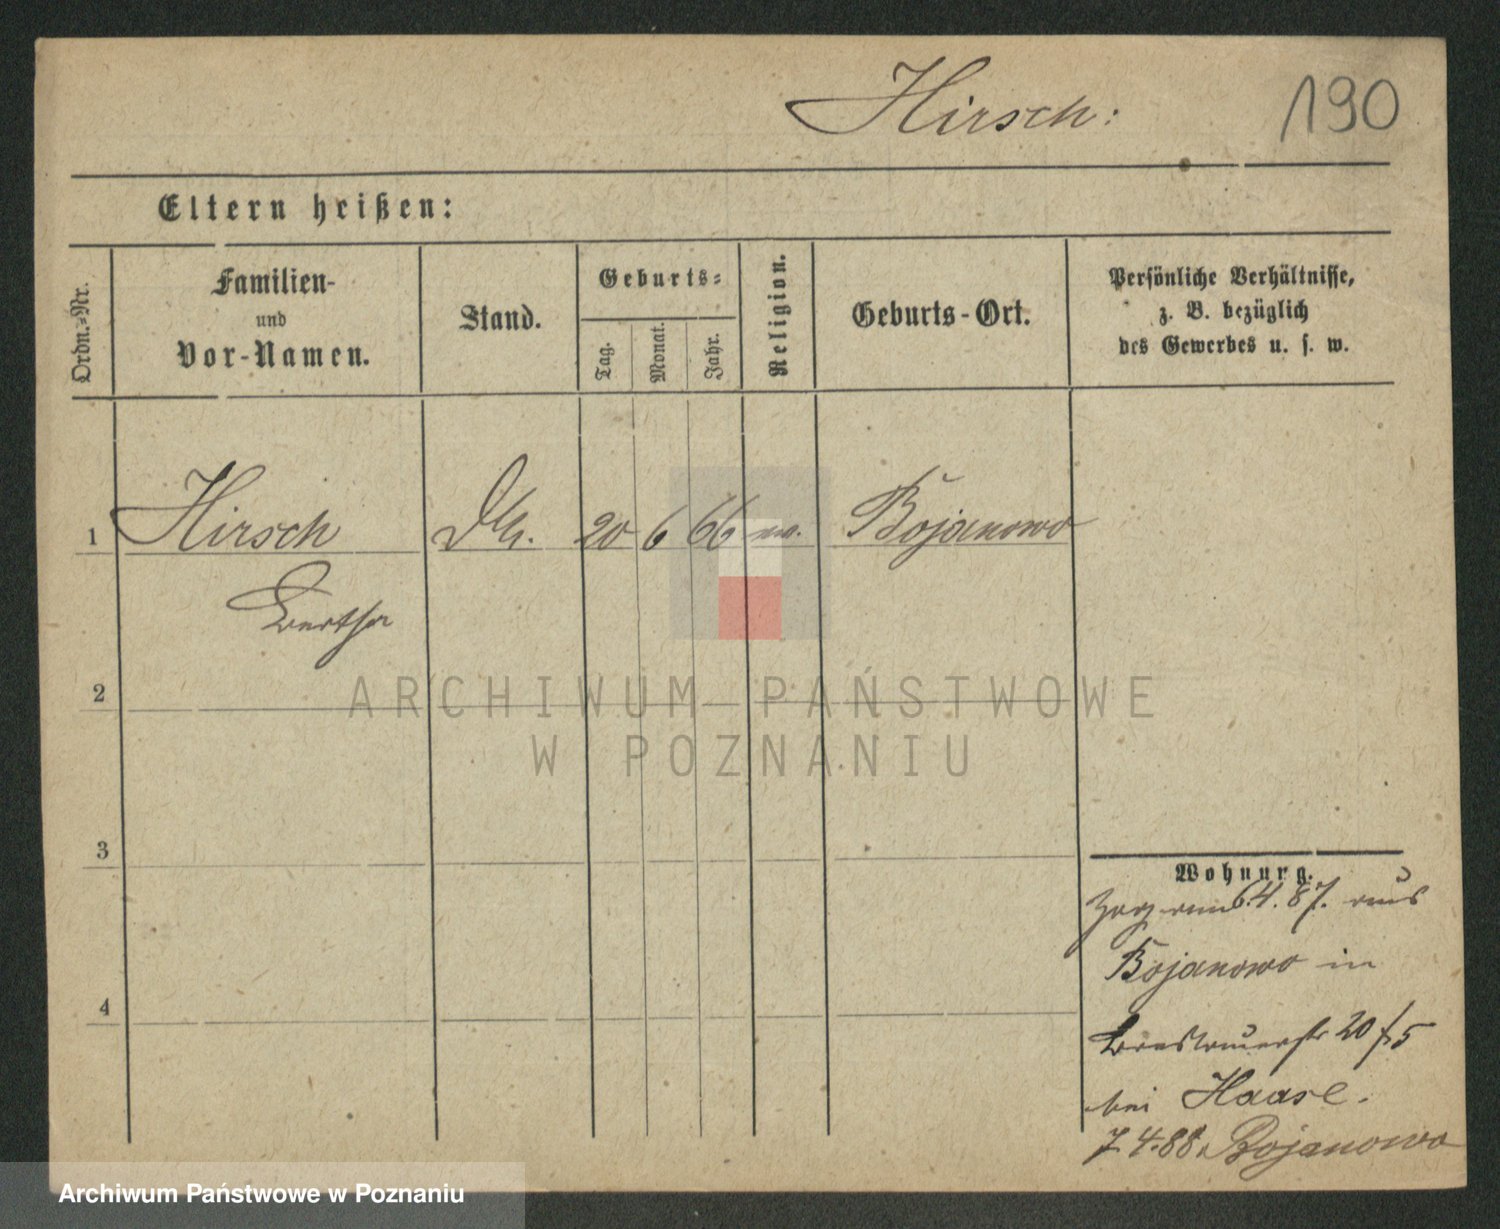 Hirsch:
190
Eltern heißen:
Ordn.-Nr.
Familien-
und
Vor-Namen.
Stand.
Geburts-
Tag.
Monat.
Jahr.
Religion.
Geburts-Ort.
Persönliche Verhältnisse,
z. B. bezüglich
des Gewerbes u. s. w.
1 Hirsch 20 6 66 Bojanowo
Bertha
2
ARCHIWUM PAŃSTWOWE
W POZNANIU
3
Wohnung.
Zog am 6.4.87. aus
Bojanowo in
20
4
bei Haase.
7.4.88 Bojanowo
Archiwum Państwowe w Poznaniu